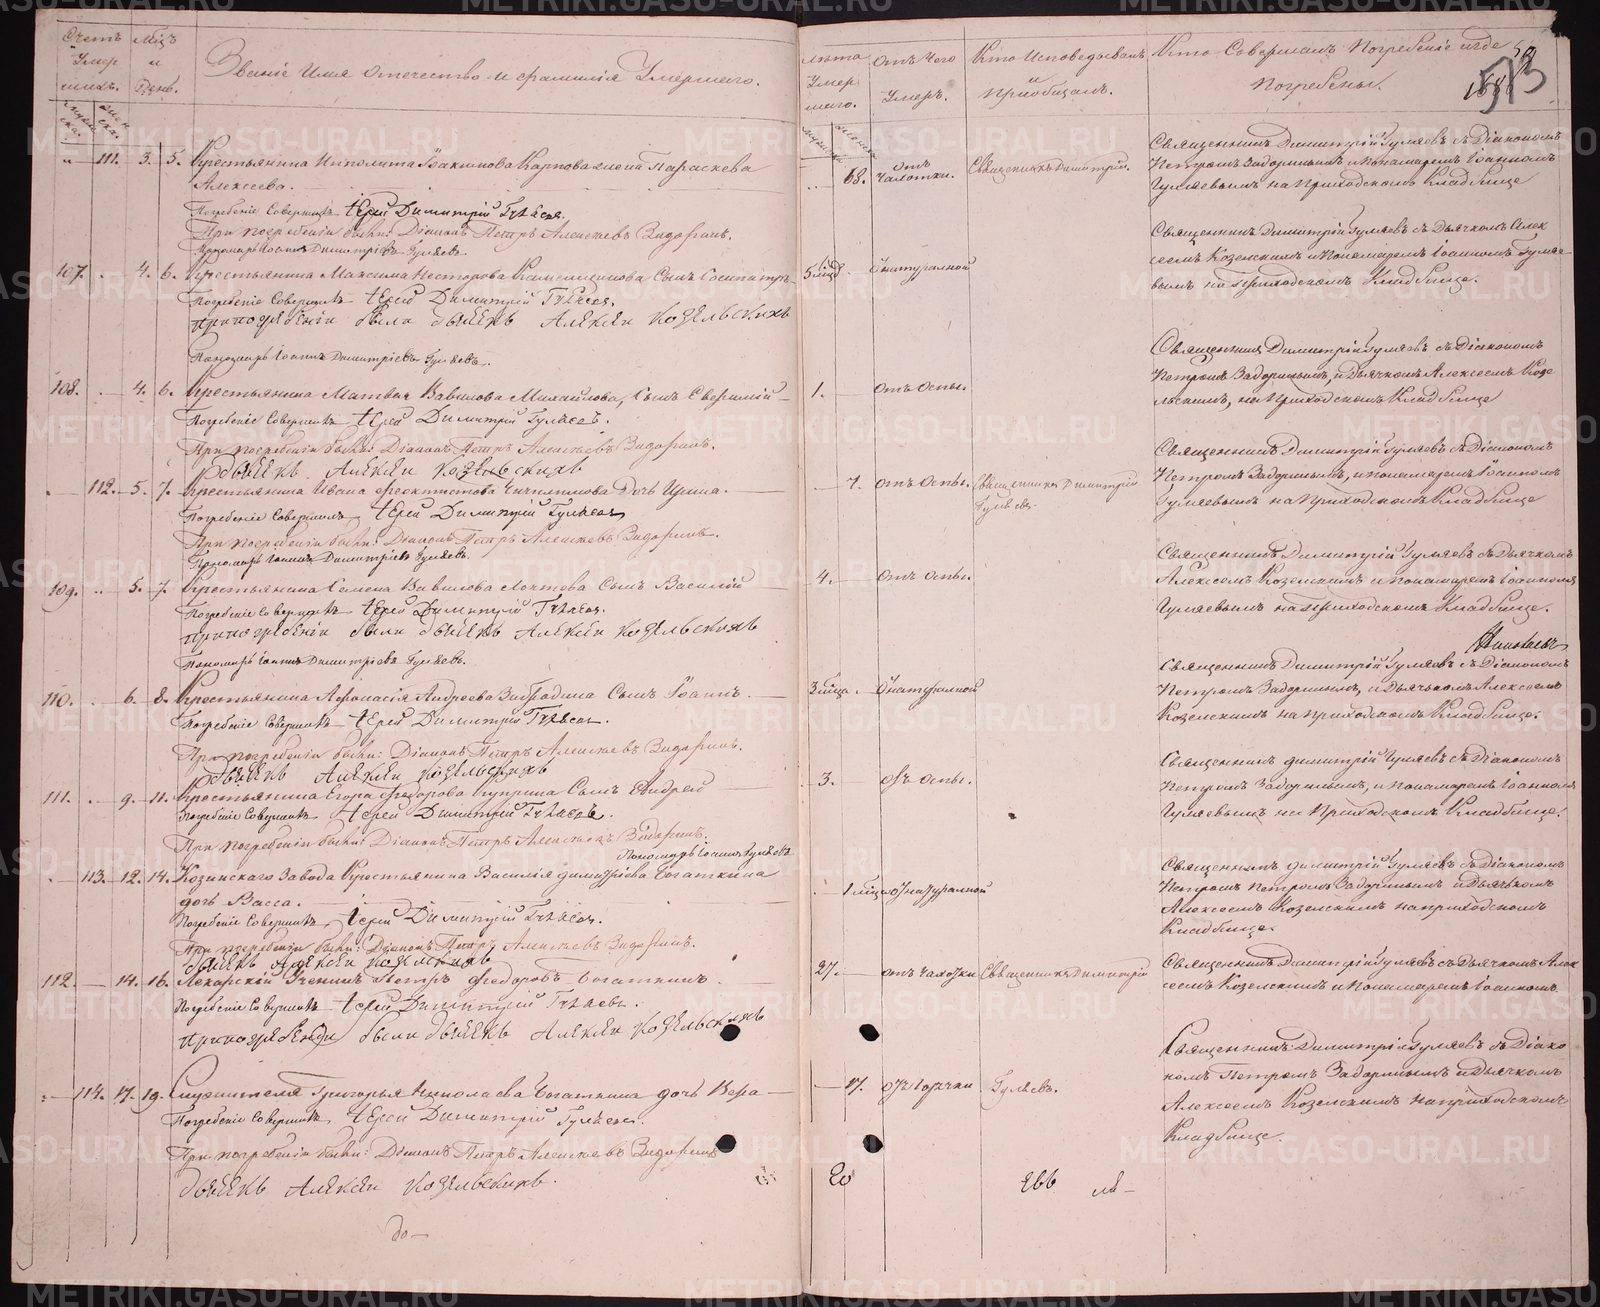 Счетъ умер шихъ.
Мѣц. и День.
Званіе Имя отечество и фамилія Умершаго.
муж ска.
жен ска.
лѣта Умер шаго.
отъ Чего Умеръ.
Кто Исповѣдывалъ и Пріобщалъ.
Кто Совершалъ Погребеніе и гдѣ Погребены.
111. 3. 5. Крестьянина Ипполита Іоакимова Карпова жена Параскева
Алексеева.
68. отъ Чахотки. Священникъ Димитрій.
Священникъ Димитрій Гуляевъ съ Діакономъ
Петромъ Задоринымъ и Понамаремъ Іоанномъ
Гуляевымъ на Приходскомъ Кладбище
Погребеніе Совершилъ Іерей Димитрій Гуляевъ.
При погребеніи были: Діаконъ Петръ Алексѣевъ Задоринъ.
Пономарь Іоаннъ Димитріевъ Гуляевъ
107. 4. 6. Крестьянина Максима Несторова Сынъ
5 мѣц. отъ натуральной
Священникъ Димитрій Гуляевъ съ Дьячкомъ Алек
сеемъ Козелскимъ и Понамаремъ Іоанномъ Гуляе
вымъ на Приходскомъ Кладбище.
Погребеніе Совершилъ Іерей Димитрій Гуляевъ.
при погребеніи были дьячекъ Алексѣй Козельскихъ
Пономарь Іоаннъ Димитріевъ Гуляевъ.
108. 4. 6. Крестьянина Матвея Вавилова Михайлова, Сынъ
1. отъ Оспы.
Священникъ Димитрій Гуляевъ съ Діакономъ
Петромъ Задоринымъ, и Дьячкомъ Алексеемъ Козе
льскимъ, на Приходскомъ Кладбище
Погребеніе Совершилъ Іерей Димитрій Гуляевъ.
При погребеніи были: Діаконъ Петръ Алексѣевъ Задоринъ.
дьячекъ Алексѣй Козельскихъ
112. 5. 7. Крестьянина Ивана Феоктистова Дочь Ирина.
7. отъ Оспы. Священникъ Димитрій
Гуляевъ.
Священникъ Димитрій Гуляевъ съ Діакономъ
Петромъ Задоринымъ, и понамаремъ Іоанномъ
Гуляевымъ на Приходскомъ Кладбище
Погребеніе Совершилъ Іерей Димитрій Гуляевъ
При погребеніи были: Діаконъ Петръ Алексѣевъ Задоринъ.
Пономарь Іоаннъ Димитріевъ Гуляевъ.
109. 5. 7. Крестьянина Семена Вавилова Локтова Сынъ Василій
4. отъ Оспы.
Священникъ Димитрій Гуляевъ съ Дьячкомъ
Алексеемъ Козелскимъ и понамаремъ Іоанномъ
Гуляевымъ на Приходскомъ Кладбище.
Погребеніе Совершилъ Іерей Димитрій Гуляевъ.
при погребеніи были дьячекъ Алексѣй Козельскихъ
Пономарь Іоаннъ Димитріевъ Гуляевъ.
110. 6. 8. Крестьянина Афонасія Андреева Забродина Сынъ Іоаннъ.
3 мѣца. отъ натуральной
Священникъ Димитрій Гуляевъ съ Діакономъ
Петромъ Задоринымъ, и Дьячкомъ Алексеемъ
Козелскимъ на приходскомъ Кладбище.
Погребеніе Совершилъ Іерей Димитрій Гуляевъ.
При погребеніи были: Діаконъ Петръ Алексѣевъ Задоринъ.
дьячекъ Алексѣй Козельскихъ
111. 9. 11. Крестьянина Егора Федорова Куприна Сынъ Андрей
3. отъ оспы.
Священникъ Димитрій Гуляевъ съ Діакономъ
Петромъ Задоринымъ, и Понамаремъ Іоанномъ
Гуляевымъ на Приходскомъ Кладбище.
Погребеніе Совершилъ Іерей Димитрій Гуляевъ.
При погребеніи были: Діаконъ Петръ Алексѣевъ Задоринъ.
Пономарь Іоаннъ Гуляевъ
113. 12. 14. Козинскаго Завода Крестьянина Василія димитріева Богаткина
дочь Васса.
1 мѣца отъ натуралной
Священникъ димитрій Гуляевъ съ Діакономъ
Петромъ Петромъ Задоринымъ и Дьячкомъ
Алексеемъ Козелскимъ на приходскомъ
Кладбище.
Погребеніе Совершилъ Іерей Димитрій Гуляевъ.
При погребеніи были: Діаконъ Петръ Алексѣевъ Задоринъ.
дьячекъ Алексѣй Козельскихъ
112. 14. 16. Лекарскій Ученикъ Петръ Федоровъ Богаткинъ
27. отъ Чахотки Священникъ Димитрій
Священникъ Димитрій Гуляевъ съ Дьячкомъ Алек
сеемъ Козелскимъ и Понамаремъ Іоанномъ
Погребеніе Совершилъ Іерей Димитрій Гуляевъ.
при погребеніи были дьячекъ Алексѣй Козельскихъ
114. 17. 19. Служителя Григорья Николаева Богаткина дочь Вера
17. отъ Горячки Гуляевъ.
Священникъ Димитрій Гуляевъ съ Діако
номъ Петромъ Задоринымъ и Дьячкомъ
Алексеемъ Козелскимъ на приходскомъ
Кладбище.
Погребеніе Совершилъ Іерей Димитрій Гуляевъ.
При погребеніи были: Діаконъ Петръ Алексѣевъ Задоринъ
дьячекъ Алексѣй Козельскихъ.
METRIKI.GASO-URAL.RU